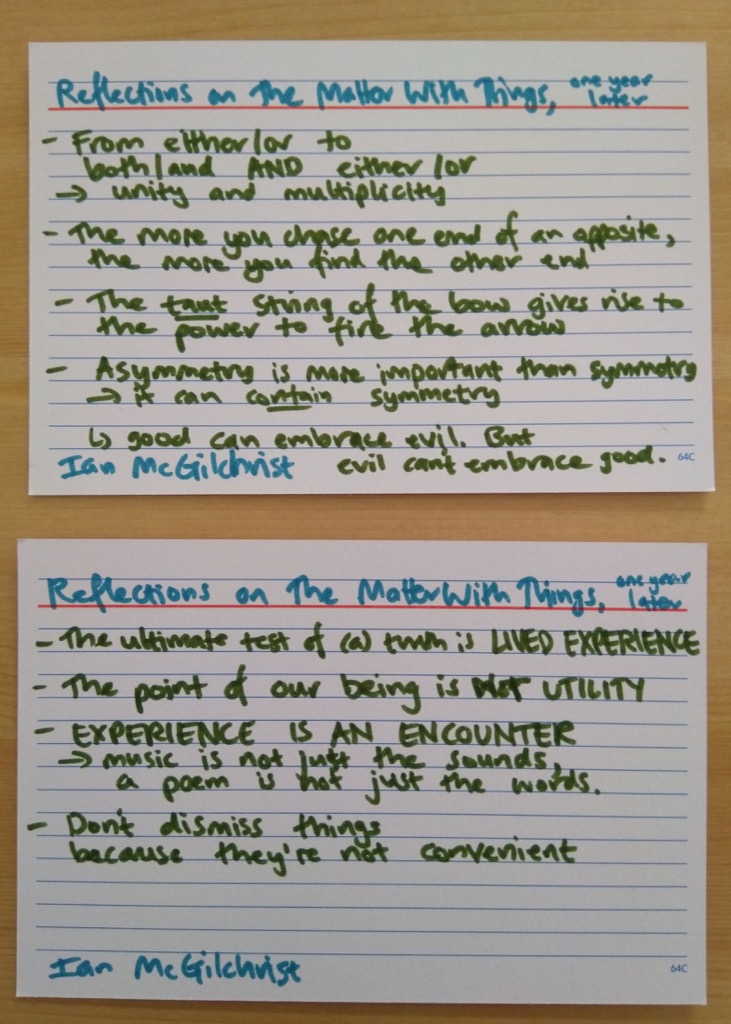 Reflections on The Matter With Things, one year later
- From either/or to
both/and AND either/or
→ unity and multiplicity
- The more you chase one end of an opposite,
the more you find the other end
- The taut string of the bow gives rise to
the power to fire the arrow
- Asymmetry is more important than symmetry
→ it can contain symmetry
↳ good can embrace evil. But
evil can't embrace good.
Ian McGilchrist
64C
Reflections on The Matter With Things, one year later
- The ultimate test of (a) truth is LIVED EXPERIENCE
- The point of our being is NOT UTILITY
- EXPERIENCE IS AN ENCOUNTER
→ music is not just the sounds,
a poem is not just the words.
- Don't dismiss things
because they're not convenient
Ian McGilchrist
64C